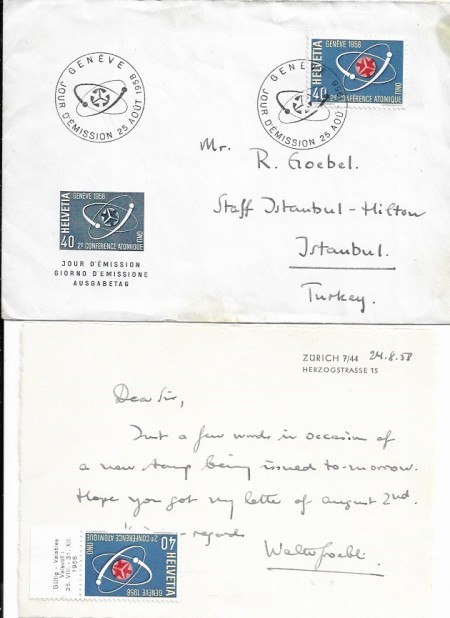 GENÈVE
JOUR D'ÉMISSION 25 AOÛT 1958
GENÈVE 1958
JOUR D'ÉMISSION 25 AOÛT
HELVETIA
GENÈVE 1958
40
2e CONFÉRENCE ATOMIQUE
ONU
Mr. R. Goebel.
Staff Istanbul-Hilton
Istanbul.
Turkey.
HELVETIA
GENÈVE 1958
40
2e CONFÉRENCE ATOMIQUE
ONU
JOUR D'ÉMISSION
GIORNO D'EMISSIONE
AUSGABETAG
ZÜRICH 7/44 24.8.58
HERZOGSTRASSE 15
Dear Sir,
Just a few words in occasion of
a new stamp being issued to-morrow.
Hope you got my letter of august 2nd.
regards
Walter
Gültig - Valables
Valevoli
25. VIII.-31. XII.
1958
HELVETIA
GENÈVE 1958
40
2e CONFÉRENCE ATOMIQUE
ONU